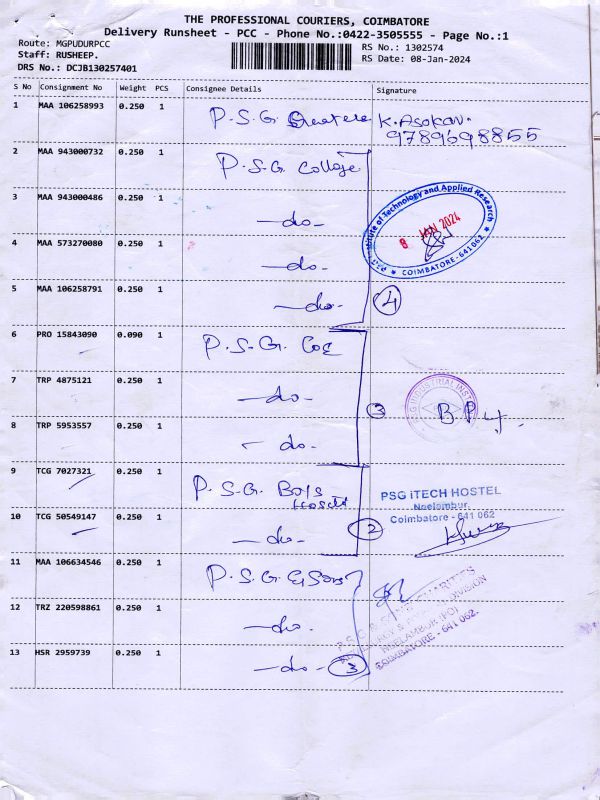 THE PROFESSIONAL COURIERS, COIMBATORE
Delivery Runsheet - PCC - Phone No.:0422-3505555 - Page No.:1
Route: MGPUDURPCC
RS No.: 1302574
Staff: RUSHEEP.
RS Date: 08-Jan-2024
DRS No.: DCJB130257401
S No Consignment No Weight PCS Consignee Details Signature
1 MAA 106258993 0.250 1 P.S.G. K. Asokan.
9789598855
2 MAA 943000732 0.250 1 P.S.G College
3 MAA 943000486 0.250 1 -do-
Institute of Technology and Applied Research
8 JAN 2024
COIMBATORE-641 062
4 MAA 573270080 0.250 1 -do-
5 MAA 106258791 0.250 1 -do- 4
6 PRO 15843090 0.090 1 P.S.G. CoE
7 TRP 4875121 0.250 1 -do- 3
PSG INDUSTRIAL INSTI
8 TRP 5953557 0.250 1 do-
9 TCG 7027321 0.250 1 P.S.G. Boys
Hostel
PSG iTECH HOSTEL
Neelambur,
Coimbatore - 641 062
10 TCG 50549147 0.250 1 -do- 2
11 MAA 106634546 0.250 1 P.S.G & Sons
12 TRZ 220598861 0.250 1 -do-
P.S.G & SONS CHARITIES
DIVISION
NEELAMBUR (PO)
COIMBATORE - 641 062.
13 HSR 2959739 0.250 1 -do- 3